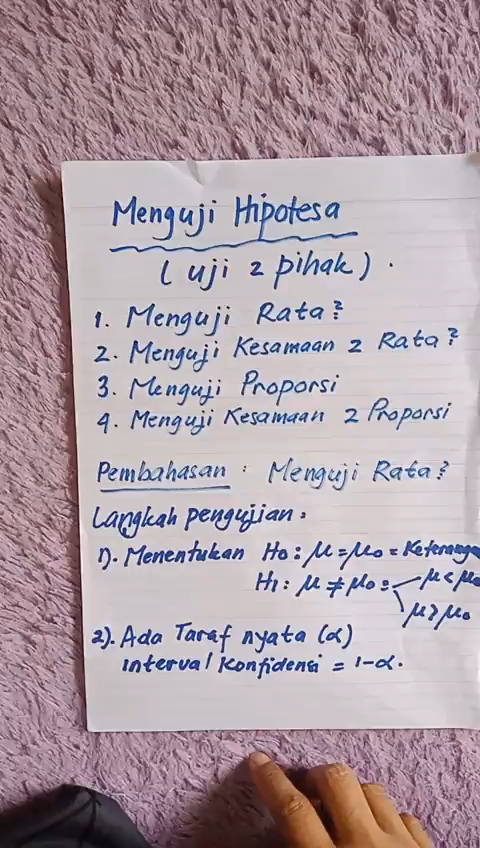 Menguji Hipotesa
(uji 2 pihak).
1. Menguji Rata²
2. Menguji Kesamaan 2 Rata²
3. Menguji Proporsi
4. Menguji Kesamaan 2 Proporsi
Pembahasan : Menguji Rata²
Langkah pengujian :
1). Menentukan Ho : μ = μo =
H1 : μ ≠ μo = μ < μo
μ > μo
2). Ada Taraf nyata (α)
interval Konfidensi = 1-α.